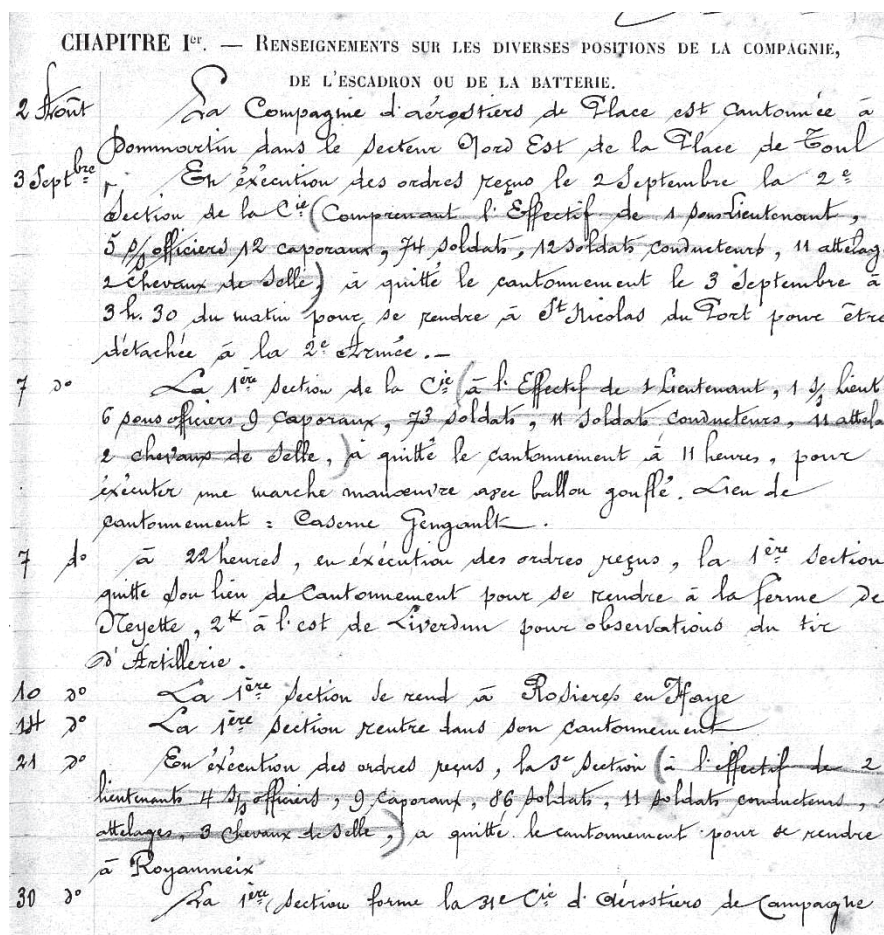 CHAPITRE Ier. — RENSEIGNEMENTS SUR LES DIVERSES POSITIONS DE LA COMPAGNIE,
DE L'ESCADRON OU DE LA BATTERIE.
2 Août La Compagnie d'aérostiers de Place est cantonnée à
Dommartin dans le secteur Nord Est de la Place de Toul
3 Septbre En éxécution des ordres reçus le 2 Septembre la 2e
Section de la Cie (Comprenant l'Effectif de 1 sous Lieutenant,
5 s/officiers 12 caporaux, 74 soldats, 12 soldats conducteurs, 11 attelag
2 chevaux de selle) à quitté le cantonnement le 3 Septembre à
3h.30 du matin pour se rendre à St Nicolas du Port pour être
détachée à la 2e Armée. –
7 do La 1ère Section de la Cie (à l'Effectif de 1 Lieutenant, 1 s/ Lieut
6 sous officiers 9 Caporaux, 73 soldats, 11 Soldats conducteurs, 11 attela
2 chevaux de selle,) à quitté le cantonnement à 11 heures, pour
éxécuter une marche manœuvre avec ballon gonflé. Lieu de
cantonnement : Caserne Gengault.
7 do à 22 heures, en éxécution des ordres reçus, la 1ère Section
quitte son lieu de Cantonnement pour se rendre à la ferme de
Neyette, 2k à l'est de Liverdun pour observations du tir
d'Artillerie.
10 do La 1ère Section se rend à Rosieres en Haye
14 do La 1ère Section rentre dans son cantonnement
21 do En éxécution des ordres reçus, la 3e Section (à l'effectif de 2
lieutenants 4 s/officiers, 9 Caporaux, 86 soldats, 11 soldats conducteurs,
attelages, 3 chevaux de selle,) a quitté le cantonnement pour se rendre
à Royaumeix
30 do La 1ère Section forme la 31e Cie d'Aérostiers de Campagne